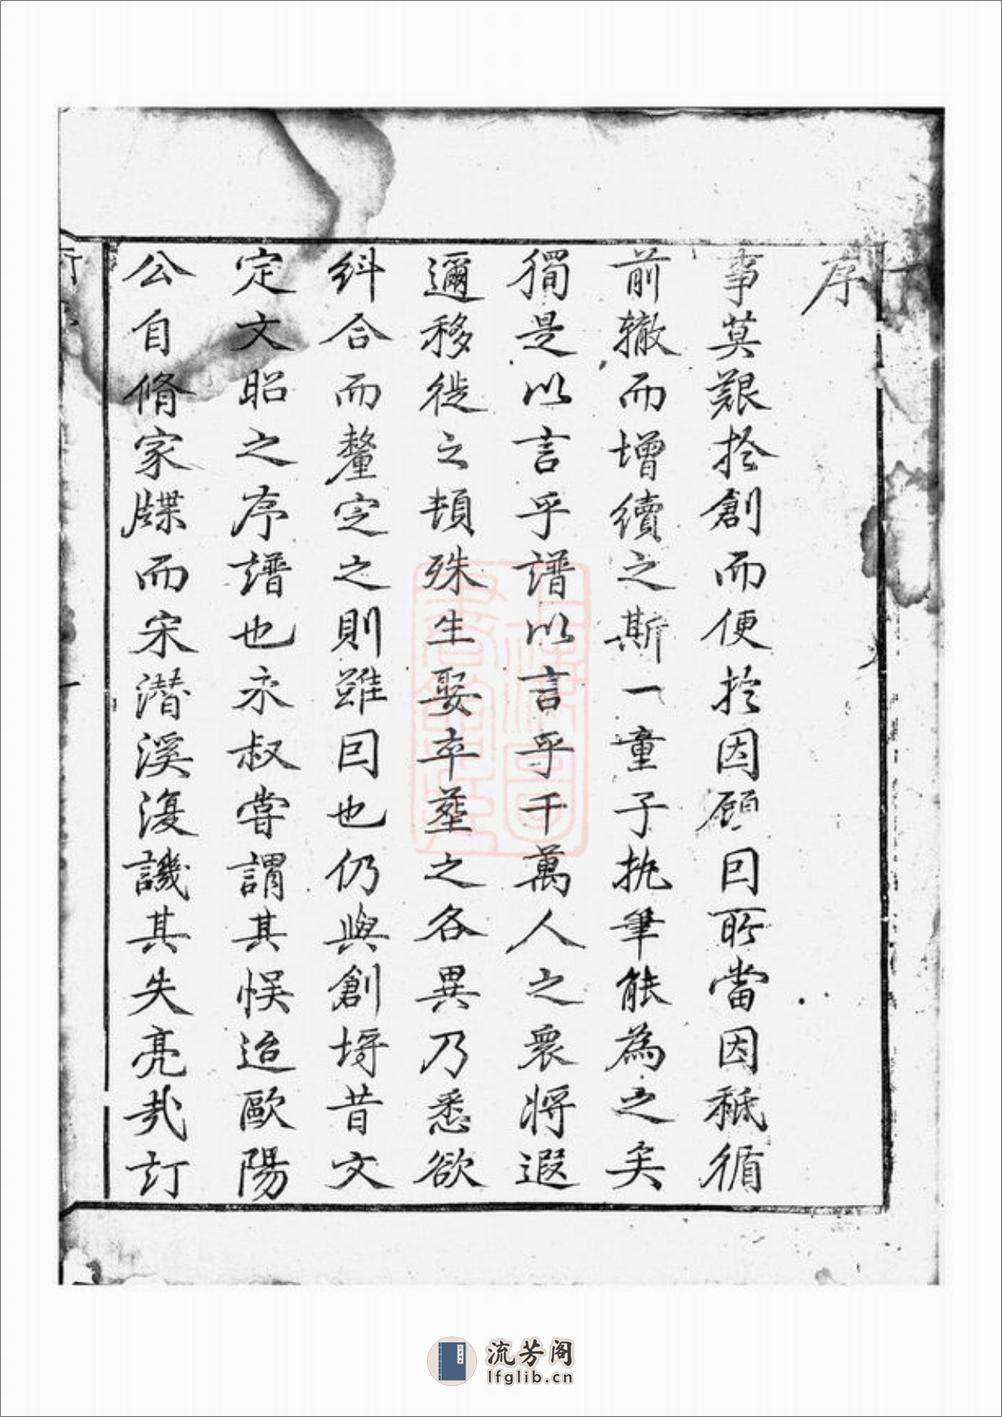 序
事莫艱扵創而便扵因顧曰所當因秪循
前轍而增續之斯一童子执筆能為之矣
獨是以言乎譜以言乎千萬人之衆將遐
邇移徙之頓殊生娶卒塟之各異乃悉欲
糾合而釐定之則雖曰也仍與創埒昔文
定文昭之序譜也永叔嘗謂其悮迨歐陽
公自脩家牒而宋潛溪復譏其失亮哉訂
上海圖
書館藏
流芳阁
lfglib.cn